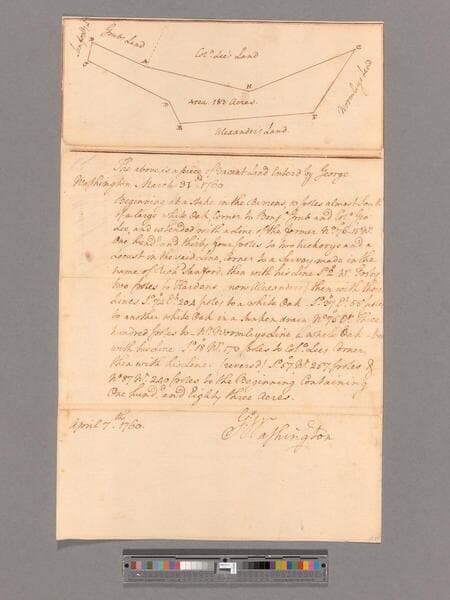 Grubs Land
Colo. Lee's Land
Wormleys Land
B
G
A
H
C
D
E
F
Area 183 Acres.
Alexanders Land.
The above is a piece of Vacant Land Enterd by George
Washington March 31st 1760
Beginning at a Stake in the Barrens 10 poles almost South
of a large white Oak Corner to Benja. Grub and Colo. Geo
Lee, and extended with a line of the former No. 76 d Wt.
One hund. and thirty four poles to two hickorys and a
Locust in the said Line, Corner to a Survey made in the
name of Rich Sanford, then with his Line So. W. Forty
two poles to Hardens (now Alexanders) then with those
Lines So. 72 Et. 204 poles to a white Oak So. 37 Et. 66 poles
to another white Oak in a Sunken drain No. 76 Et. Three
hundred poles to Mr. Wormleys Line a white Oak
with his Line No. 18 W. 170 poles to Colo. Lees Corner,
then with his Line (reversd) So. 57 Wt. 257 poles &
No. 87 Wt. 240 poles to the Beginning Containing
One hund. and Eighty three Acres.
April 7th. 1760.
Go. Washington